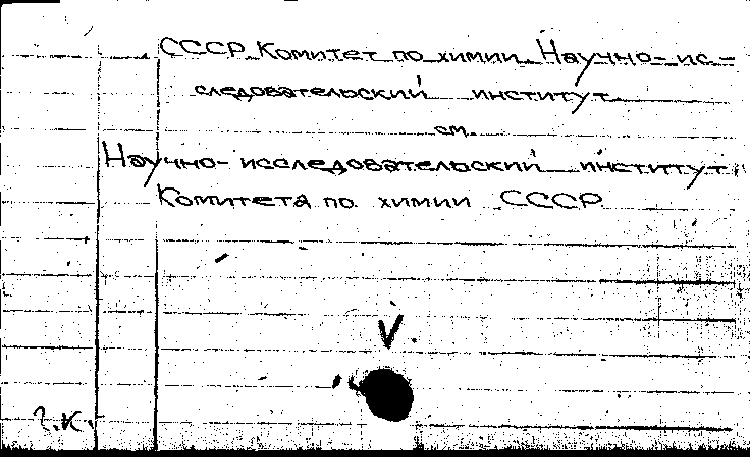 СССР. Комитет по химии. Научно-ис-
следовательский институт
см.
Научно-исследовательский институт
Комитета по химии СССР
V
г.к.